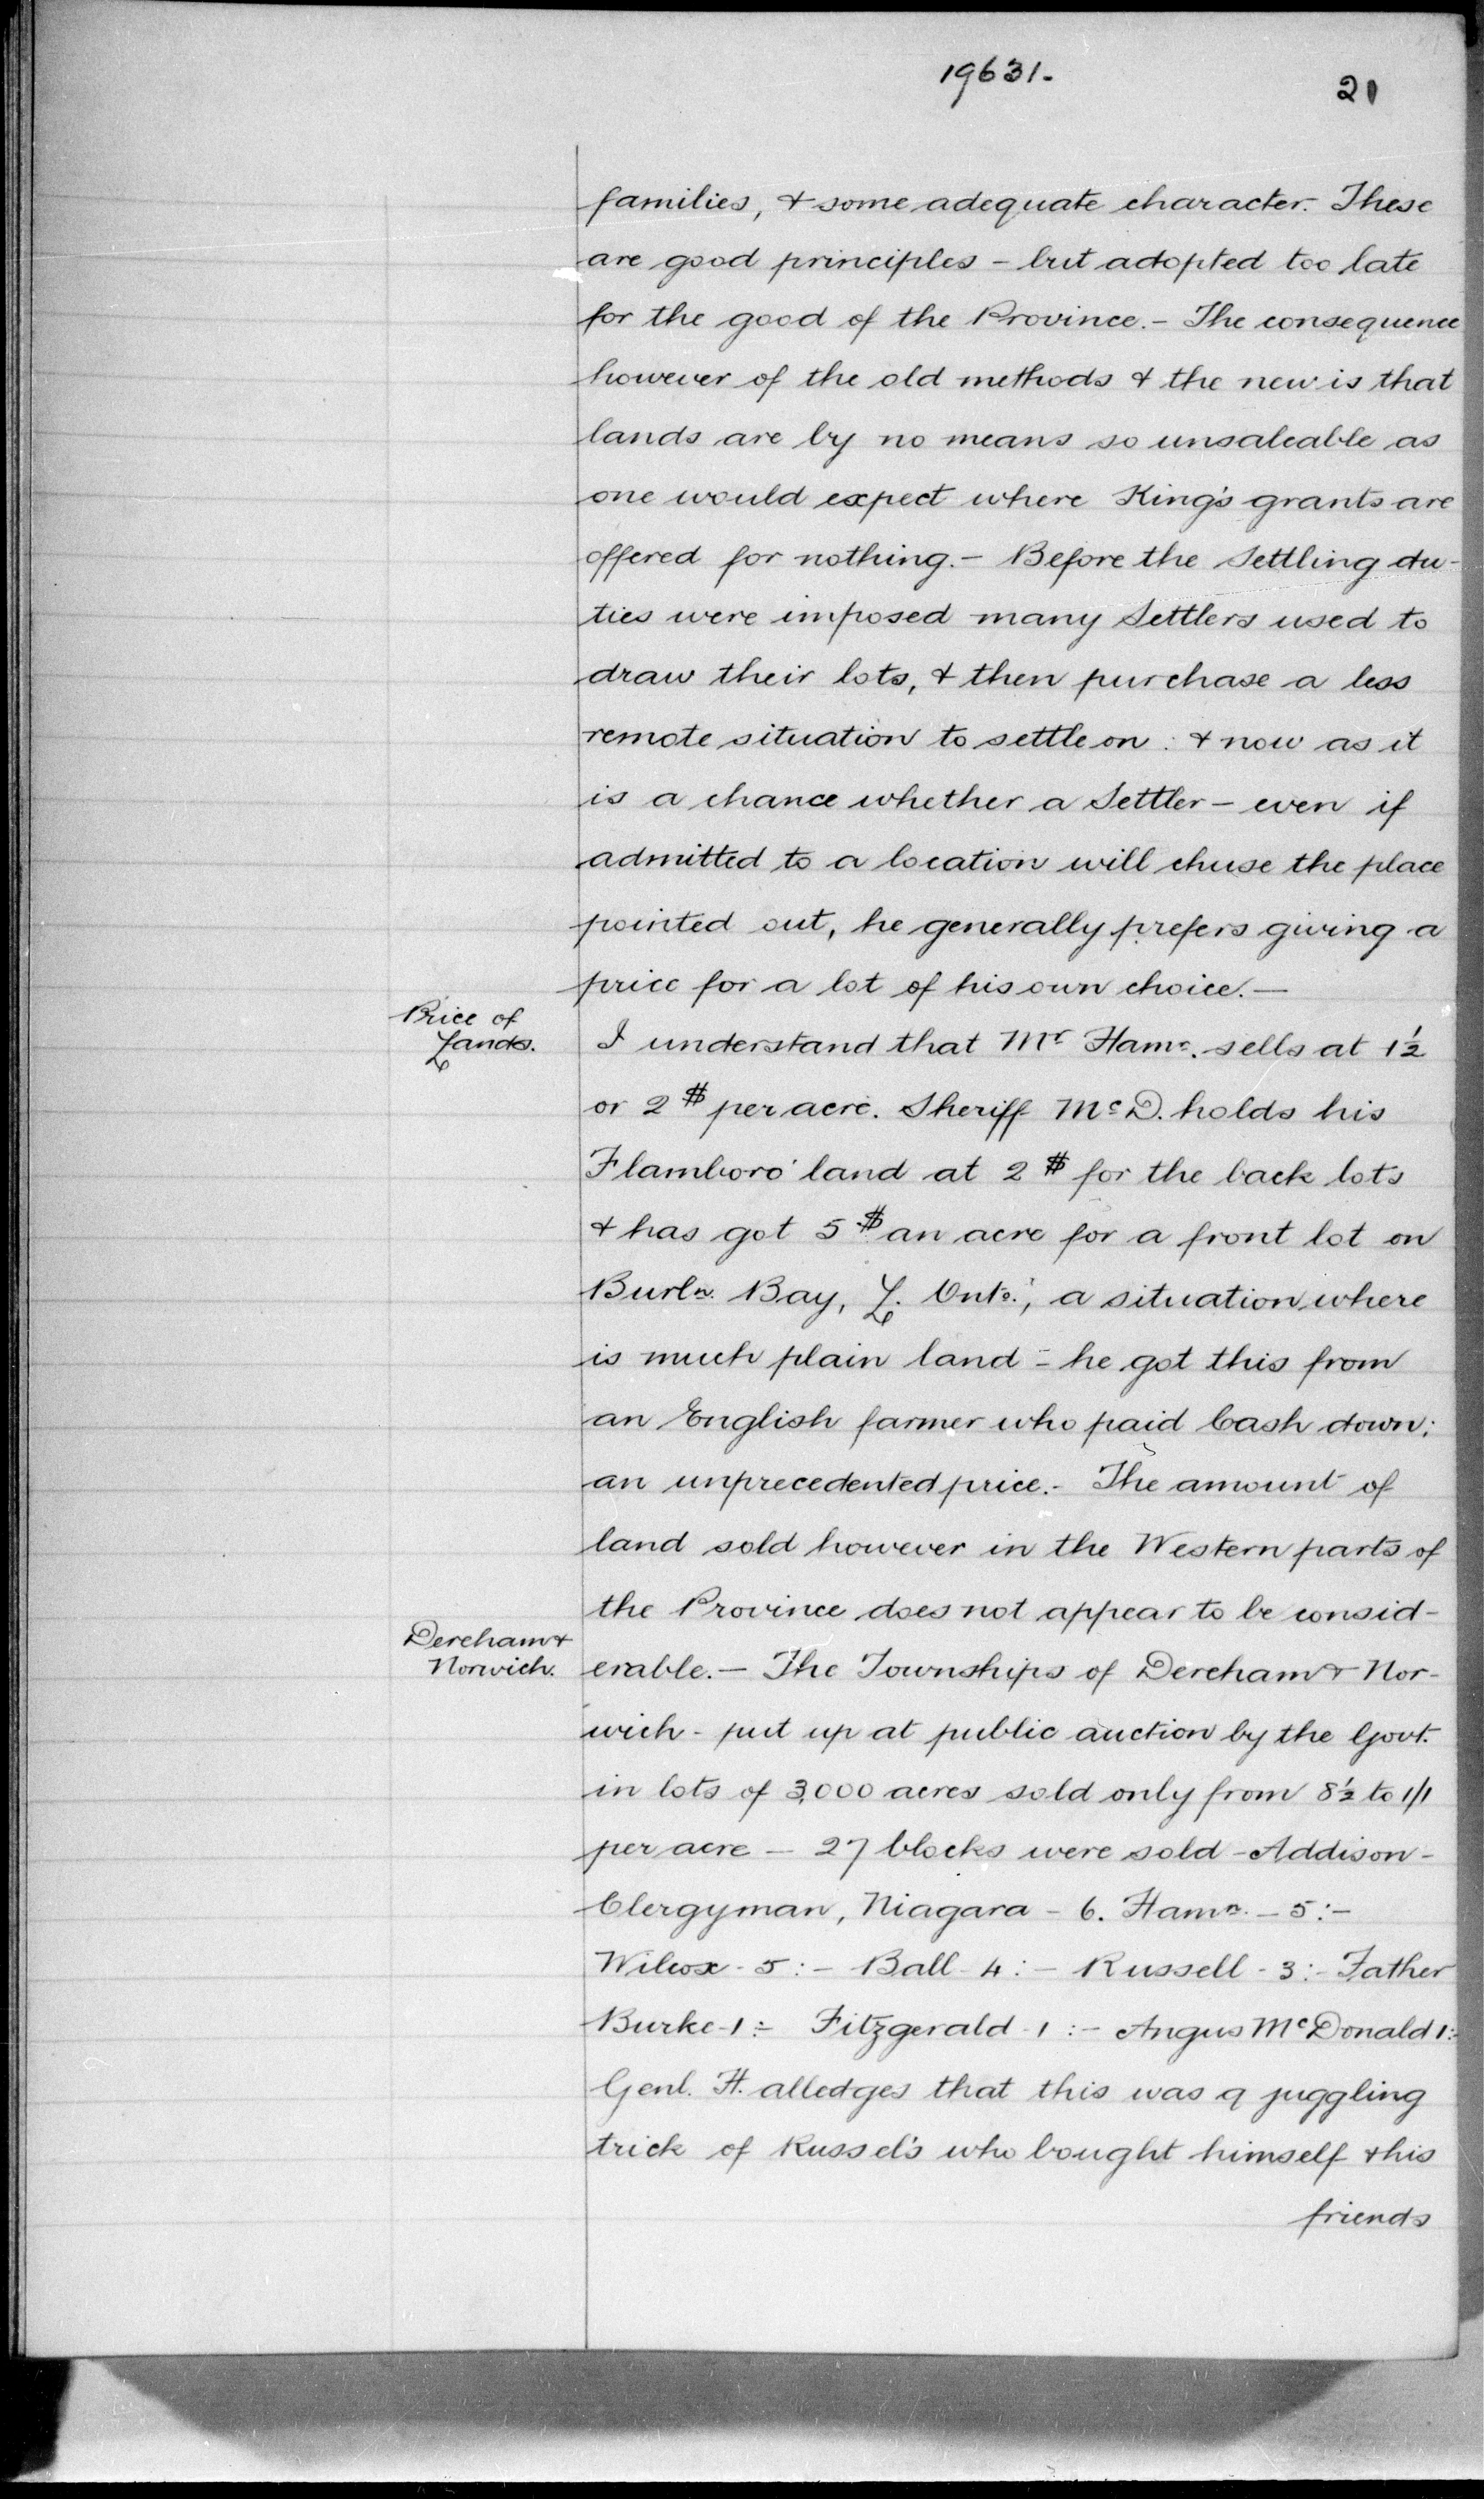 19631.
21
families, & some adequate character. These
are good principles - but adopted too late
for the good of the Province. - The consequence
however of the old methods & the new is that
lands are by no means so unsaleable as
one would expect where King's grants are
offered for nothing. - Before the Settling du-
ties were imposed many Settlers used to
draw their lots, & then purchase a less
remote situation to settle on : & now as it
is a chance whether a Settler - even if
admitted to a location will chuse the place
pointed out, he generally prefers giving a
price for a lot of his own choice. -
Price of
Lands.
I understand that Mr Hamn. sells at 1½
or 2 $ per acre. Sheriff McD. holds his
Flamboro' land at 2 $ for the back lots
& has got 5 $ an acre for a front lot on
Burln. Bay, L. Onto., a situation where
is much plain land - he got this from
an English farmer who paid Cash down;
an unprecedented price. - The amount of
land sold however in the Western parts of
the Province does not appear to be consid-
Dereham &
Norwich.
erable. - The Townships of Dereham & Nor-
wich - put up at public auction by the Govt.
in lots of 3,000 acres sold only from 8½ to 1/1
per acre - 27 blocks were sold - Addison -
Clergyman, Niagara - 6. Hamn. - 5 : -
Wilcox - 5 : - Ball - 4 : - Russell - 3 : - Father
Burke - 1 : - Fitzgerald - 1 : - Angus McDonald 1 : -
Genl. H. alledges that this was a juggling
trick of Russel's who bought himself & his
friends